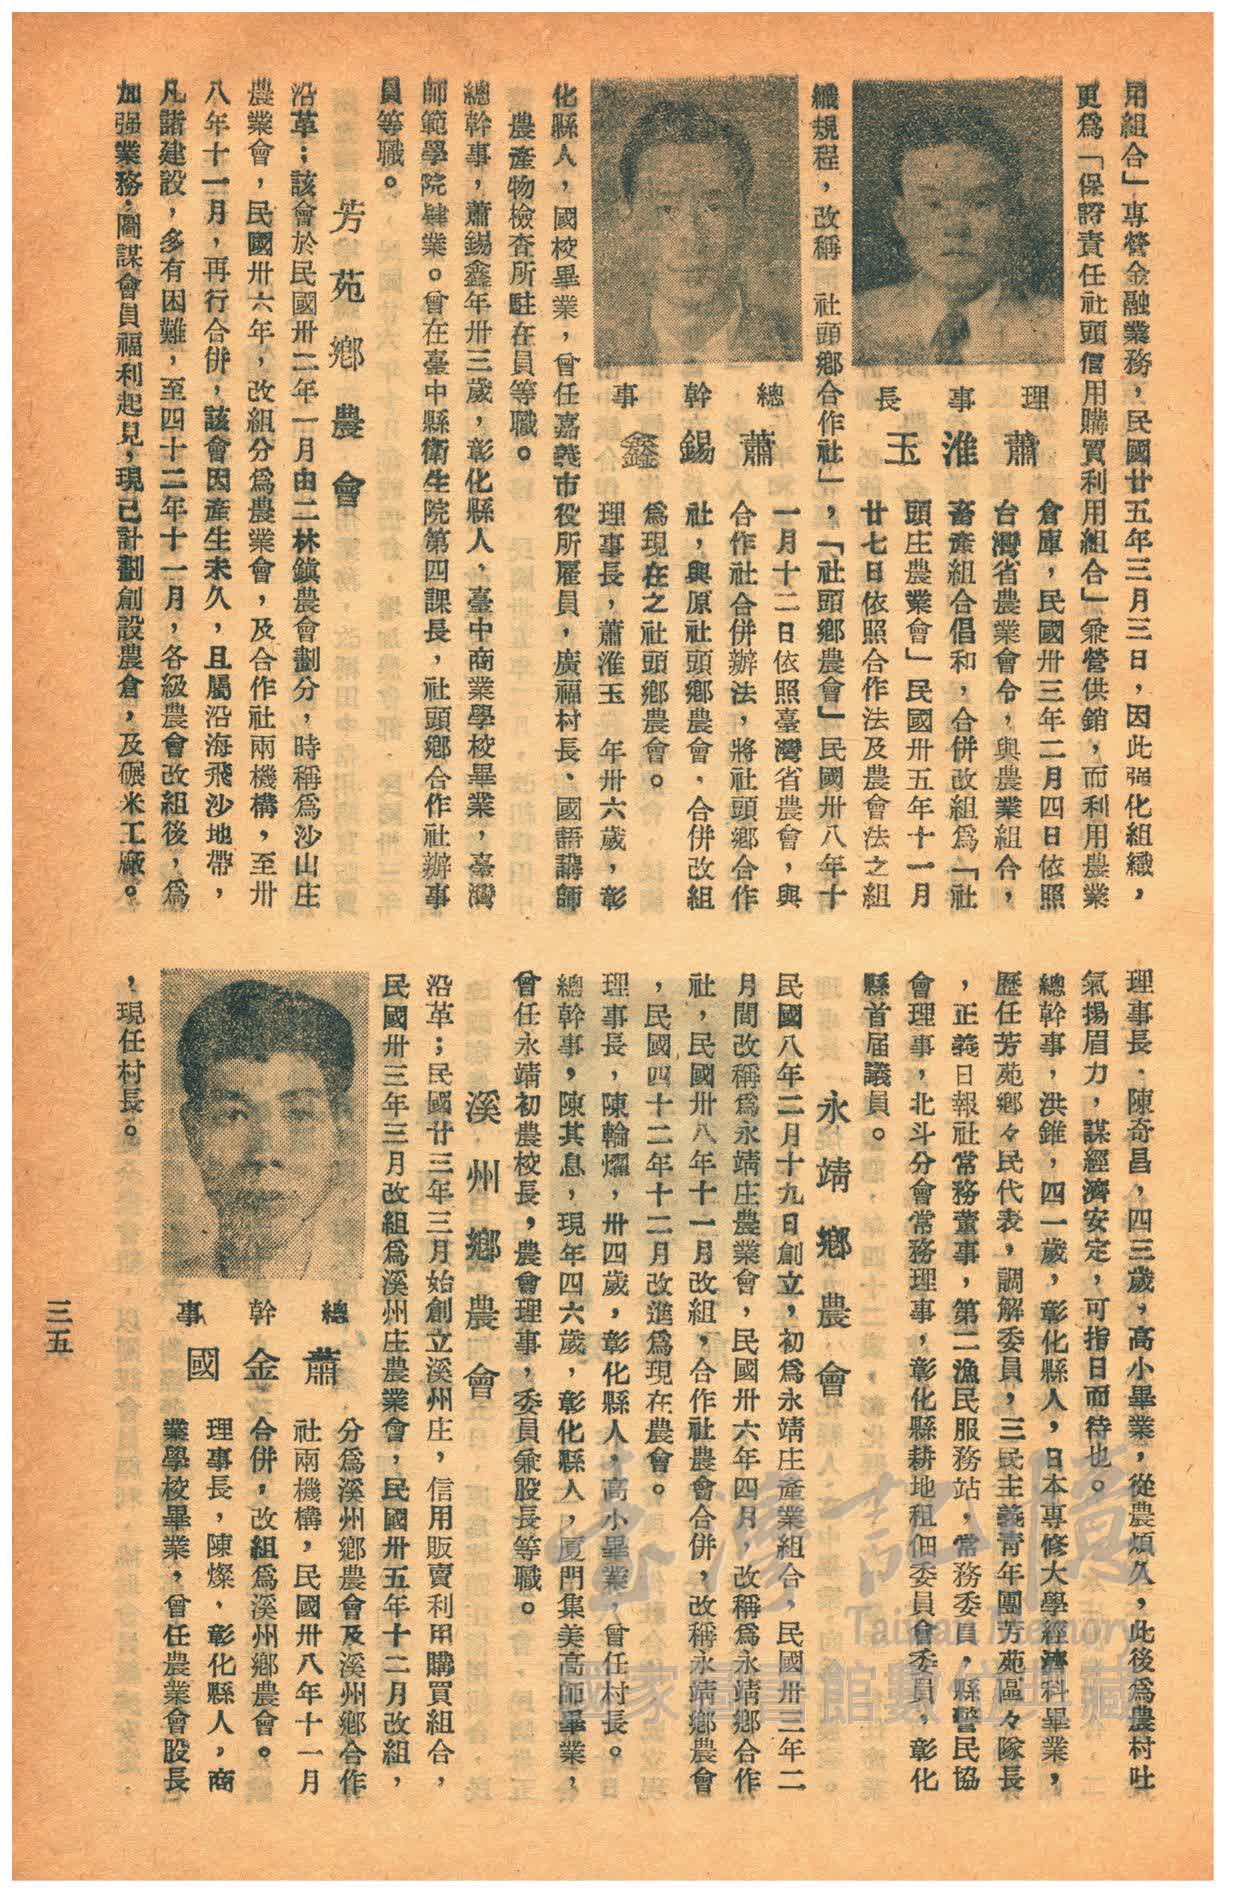 用組合」專營金融業務，民國廿五年三月三日，因此强化組織，
更爲「保證責任社頭信用購買利用組合」兼營供銷，而利用農業
倉庫，民國卅三年二月四日依照
台灣省農業會令，與農業組合，
畜產組合倡和，合併改組爲「社
頭庄農業會」民國卅五年十一月
廿七日依照合作法及農會法之組
理事長
蕭淮玉
織規程，改稱「社頭鄉合作社」，「社頭鄉農會」民國卅八年十
一月十二日依照臺灣省農會，與
合作社合併辦法，將社頭鄉合作
社，與原社頭鄉農會，合併改組
爲現在之社頭鄉農會。
理事長，蕭淮玉　年卅六歲，彰
總幹事
蕭錫鑫
化縣人，國校畢業，曾任嘉義市役所雇員，廣福村長、國語講師
農產物檢查所駐在員等職。
總幹事，蕭錫鑫年卅三歲，彰化縣人，臺中商業學校畢業，臺灣
師範學院肄業。曾在臺中縣衛生院第四課長，社頭鄉合作社辦事
員等職。
芳苑鄉農會
沿革；該會於民國卅二年一月由二林鎮農會劃分，時稱爲沙山庄
農業會，民國卅六年，改組分爲農業會，及合作社兩機構，至卅
八年十一月，再行合併，該會因產生未久，且屬沿海飛沙地帶，
凡諸建設，多有困難，至四十二年十一月，各級農會改組後，爲
加强業務，圖謀會員福利起見，現已計劃創設農倉，及碾米工廠。
理事長．陳奇昌，四三歲，高小畢業，從農頗久，此後爲農村吐
氣揚眉力，謀經濟安定，可指日而待也。
總幹事，洪錐，四一歲，彰化縣人，日本專修大學經濟科畢業，
歷任芳苑鄉々民代表，調解委員，三民主義青年團芳苑區々隊長
，正義日報社常務董事，第二漁民服務站，常務委員，縣警民協
會理事，北斗分會常務理事，彰化縣耕地租佃委員會委員，彰化
縣首届議員。
永靖鄉農會
民國八年二月十九日創立，初爲永靖庄產業組合，民國卅三年二
月間改稱爲永靖庄農業會，民國卅六年四月，改稱爲永靖鄉合作
社，民國卅八年十一月改組，合作社農會合併，改稱永靖鄉農會
，民國四十二年十二月改進爲現在農會。
理事長，陳輪燿，卅四歲，彰化縣人，高小畢業，曾任村長。
總幹事，陳其息，現年四六歲，彰化縣人，厦門集美高師畢業，
曾任永靖初農校長，農會理事，委員兼股長等職。
溪州鄉農會
沿革；民國廿三年三月始創立溪州庄，信用販賣利用購買組合，
民國卅三年三月改組爲溪州庄農業會，民國卅五年十二月改組，
分爲溪州鄉農會及溪州鄉合作
社兩機構，民國卅八年十一月
合併，改組爲溪州鄉農會。
理事長，陳燦，彰化縣人，商
業學校畢業，曾任農業會股長
總幹事
蕭金國
，現任村長。
三五
臺灣記憶
Taiwan Memory
國家圖書館數位典藏